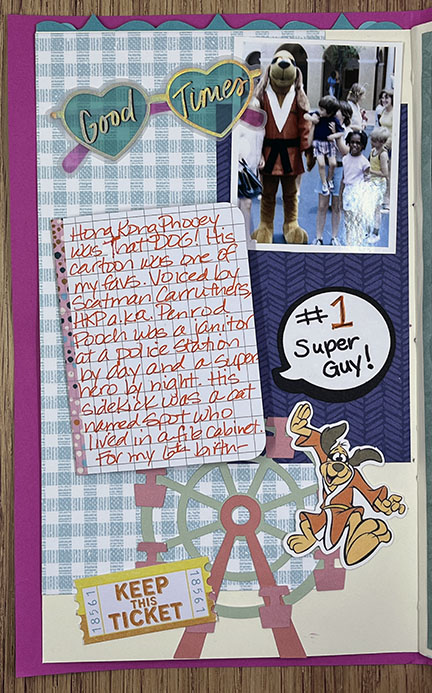 Good Times
Hong Kong Phooey
was That DOG! His
cartoon was one of
my favs. Voiced by
Scatman Carruthers,
HKP a.k.a. Penrod
Pooch was a janitor
at a police station
by day and a super
hero by night. His
sidekick was a cat
named Spot who
lived in a file cabinet.
For my 6th birth-
#1
Super
Guy!
18561
KEEP
THIS
TICKET
18561